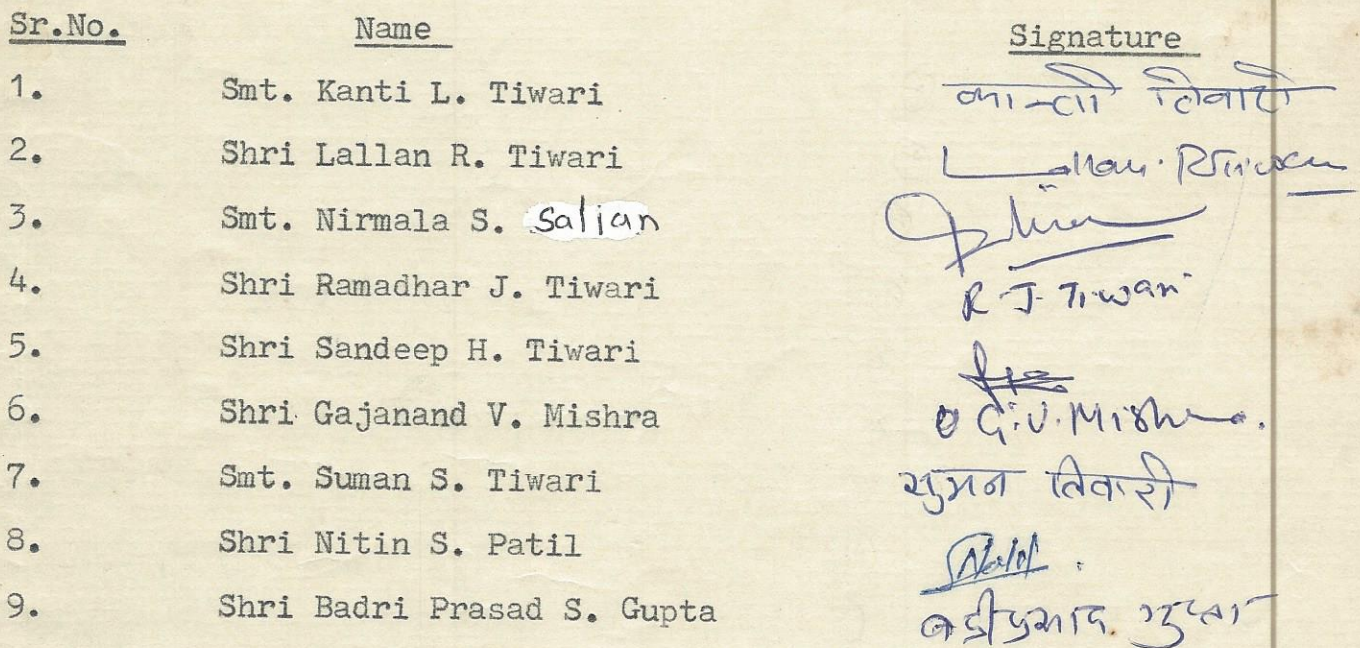 Sr.No. Name Signature
1. Smt. Kanti L. Tiwari कान्ती तिवारी
2. Shri Lallan R. Tiwari Lallan R Tiwari
3. Smt. Nirmala S. Salian
4. Shri Ramadhar J. Tiwari R. J. Tiwari
5. Shri Sandeep H. Tiwari
6. Shri Gajanand V. Mishra G.V. Mishra.
7. Smt. Suman S. Tiwari सुमन तिवारी
8. Shri Nitin S. Patil
9. Shri Badri Prasad S. Gupta बद्रीप्रसाद गुप्ता